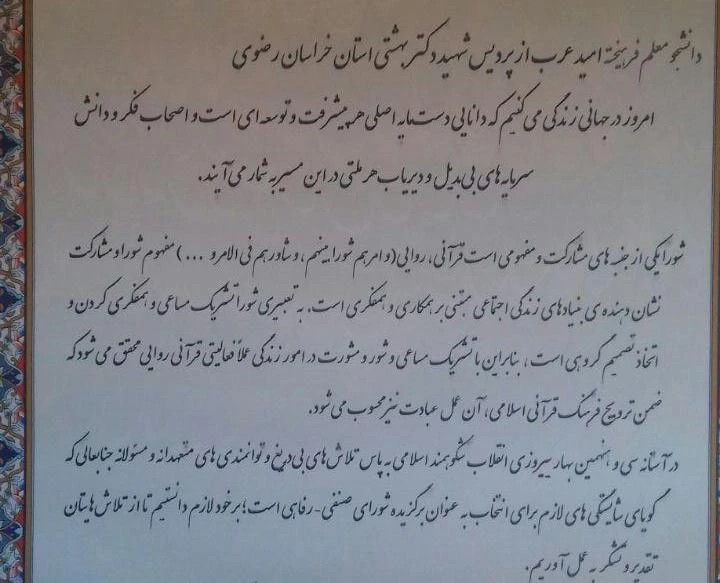 دانشجو معلم فرهیخته امید عرب از پردیس شهید دکتر بهشتی استان خراسان رضوی
امروز در جهانی زندگی می کنیم که دانایی دست مایه اصلی هر پیشرفت و توسعه ای است و اصحاب فکر و دانش
سرمایه های بی بدیل و دیریاب هر ملتی در این مسیر به شمار می آیند.
شورا یکی از جنبه های مشارکت و مفهومی است قرآنی، روایی (و امرهم شورا بینهم، و شاورهم فی الامر و ...) مفهوم شورا و مشارکت
نشان دهنده ی بنیادهای زندگی اجتماعی مبتنی بر همکاری و همفکری است. به تعبیری شورا تشریک مساعی و همفکری کردن و
اتخاذ تصمیم گروهی است، بنابراین با تشریک مساعی و شور و مشورت در امور زندگی عملاً فعالیتی قرآنی روایی محقق می شود که
ضمن ترویج فرهنگ قرآنی اسلامی، آن عمل عبادت نیز محسوب می شود.
در آستانه سی و هفتمین بهار پیروزی انقلاب شکوهمند اسلامی به پاس تلاش های بی دریغ و توانمندی های متعهدانه و مسئولانه جنابعالی که
گویای شایستگی های لازم برای انتخاب به عنوان برگزیده شورای صنفی-رفاهی است؛ بر خود لازم دانستیم تا از تلاش هایتان
تقدیر و تشکر به عمل آوریم.